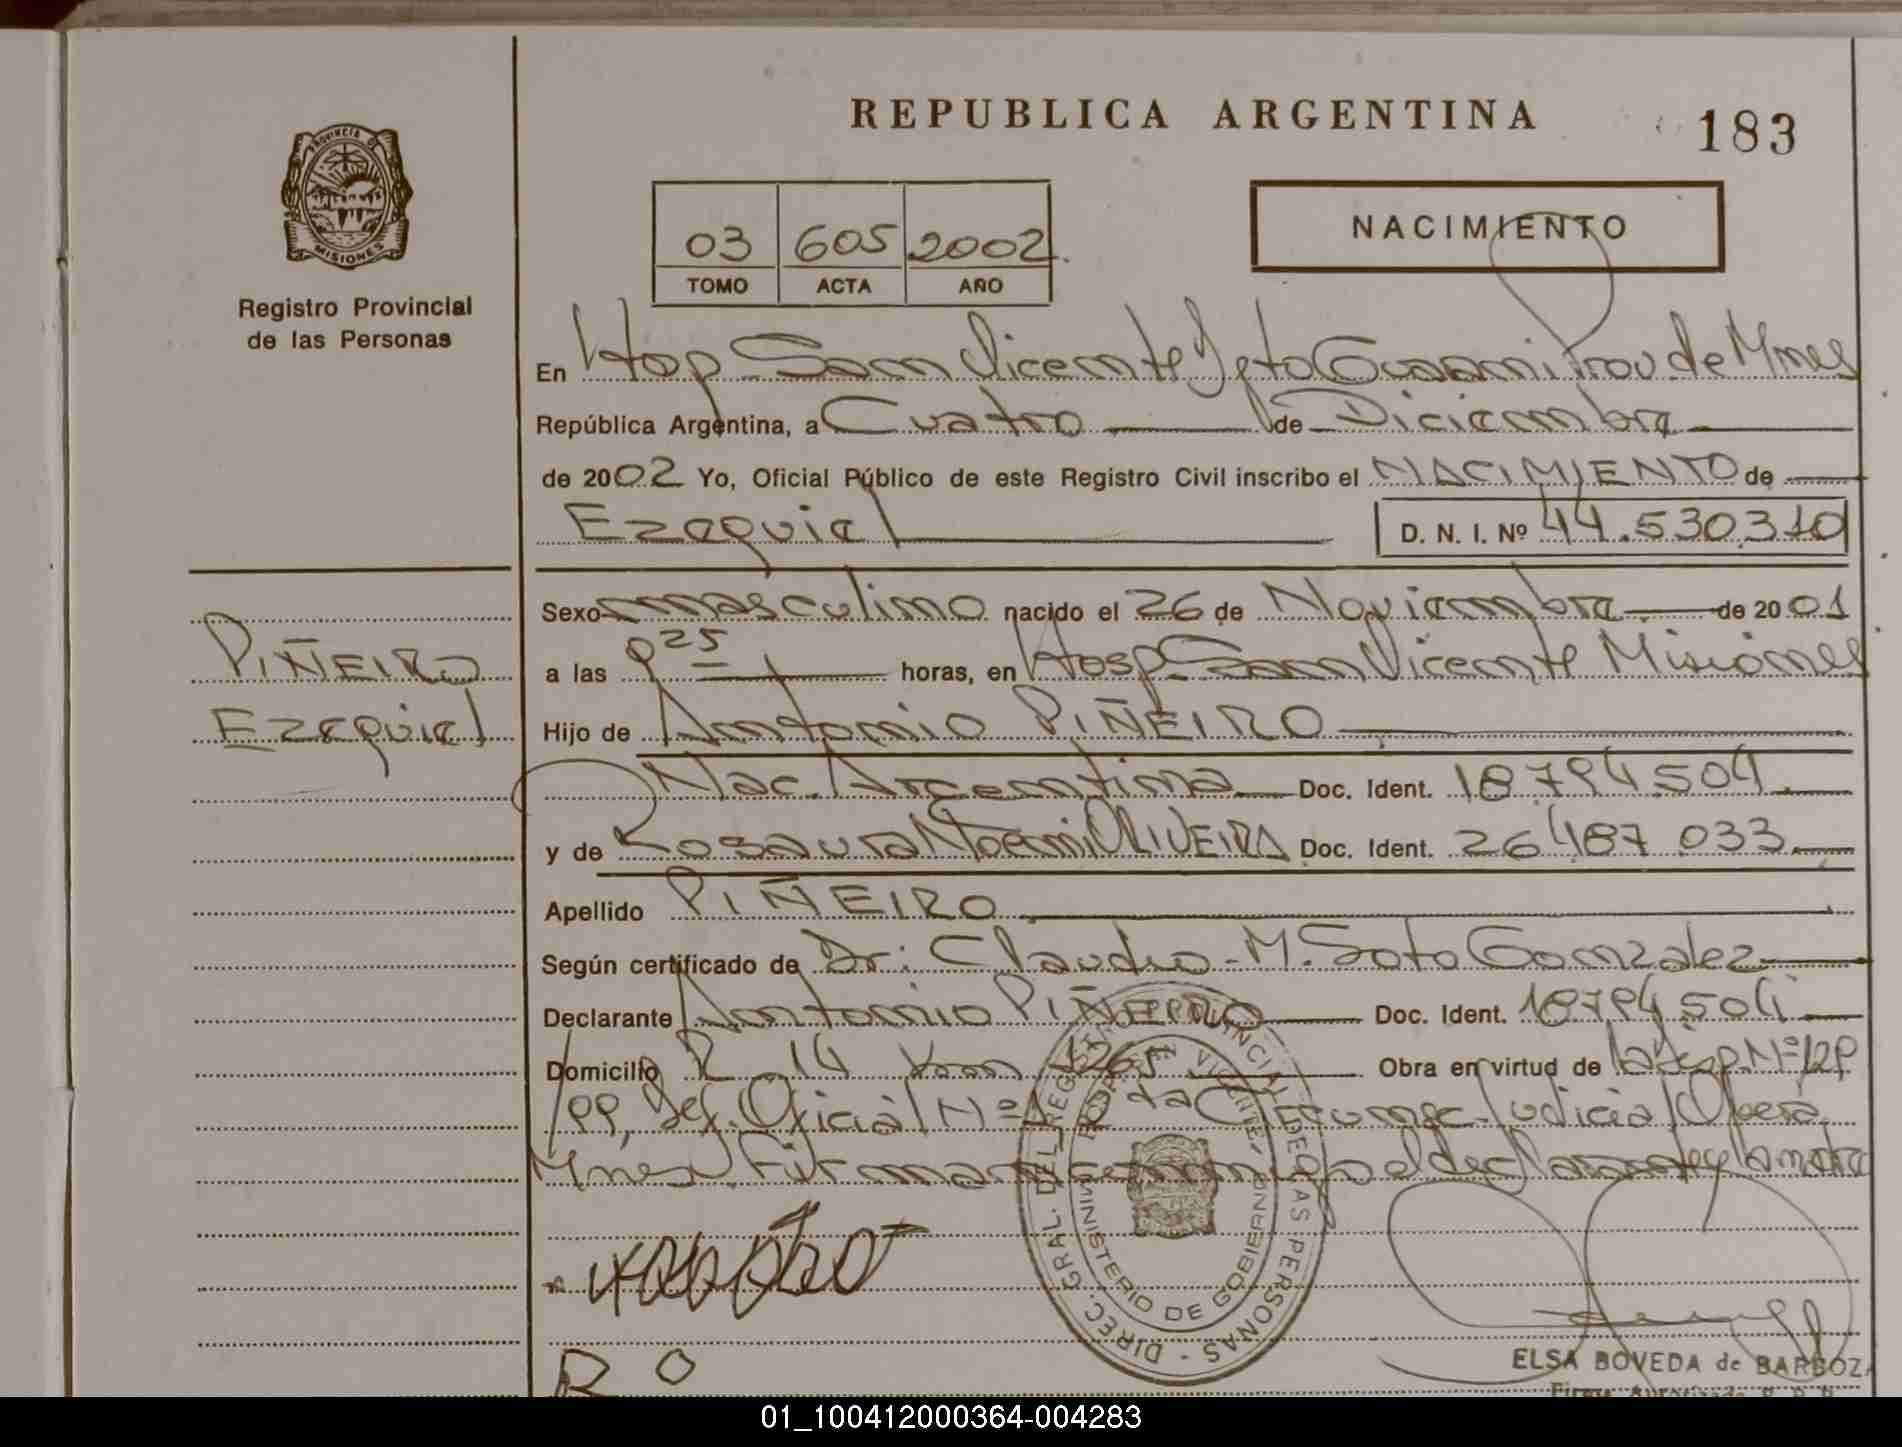 REPUBLICA ARGENTINA
183
PROVINCIA DE MISIONES
Registro Provincial
de las Personas
03 605 2002
TOMO ACTA AÑO
NACIMIENTO
En Hosp San Vicente Dpto Guarani Prov. de Mnes
República Argentina, a Cuatro de Diciembre
de 2002 Yo, Oficial Público de este Registro Civil inscribo el NACIMIENTO de
Ezequiel D. N. I. Nº 44.530.310
Sexo masculino nacido el 26 de Noviembre de 2001
a las 9 25 horas, en Hosp San Vicente Misiones
PIÑEIRO
Ezequiel
Hijo de Antonio PIÑEIRO
Nac. Argentina Doc. Ident. 18794504
y de Rosaura Noemi OLIVEIRA Doc. Ident. 26487033
Apellido PIÑEIRO
Según certificado de Dr: Claudio M. Soto Gonzalez
Declarante Antonio PIÑEIRO Doc. Ident. 18794504
Domicilio R 14 Km 1265 Obra en virtud de la Disp. Nº 129
/99, Def. Oficial Nº 1 da Circunsc. Judicial Oberá
Mnes. Firman conmigo el declarante y la madre
DIREC. GRAL. DEL REGISTRO PROVINCIAL DE LAS PERSONAS
HOSP. SAN VICENTE
MINISTERIO DE GOBIERNO
R O
ELSA BOVEDA de BARBOZA
01_100412000364-004283